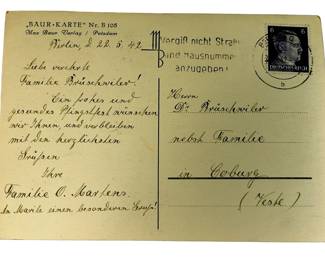 "BAUR-KARTE" Nr. B 105
Max Baur Verlag / Potsdam
Berlin, d 22. 5. 42.
Liebe verehrte
Familie Brüschwiler!
Ein frohes und
gesundes Pfingstfest wünschen
wir Ihnen, und verbleiben
mit den herzlichsten
Grüßen
Ihre
Familie O. Martens.
An Marite einen besonderen Gruß!
Vergiß nicht Straße
und Hausnummer
anzugeben!
6 6
DEUTSCHES REICH
b
Herrn
Dr. Brüschwiler
nebst Familie
in Coburg
(Veste)